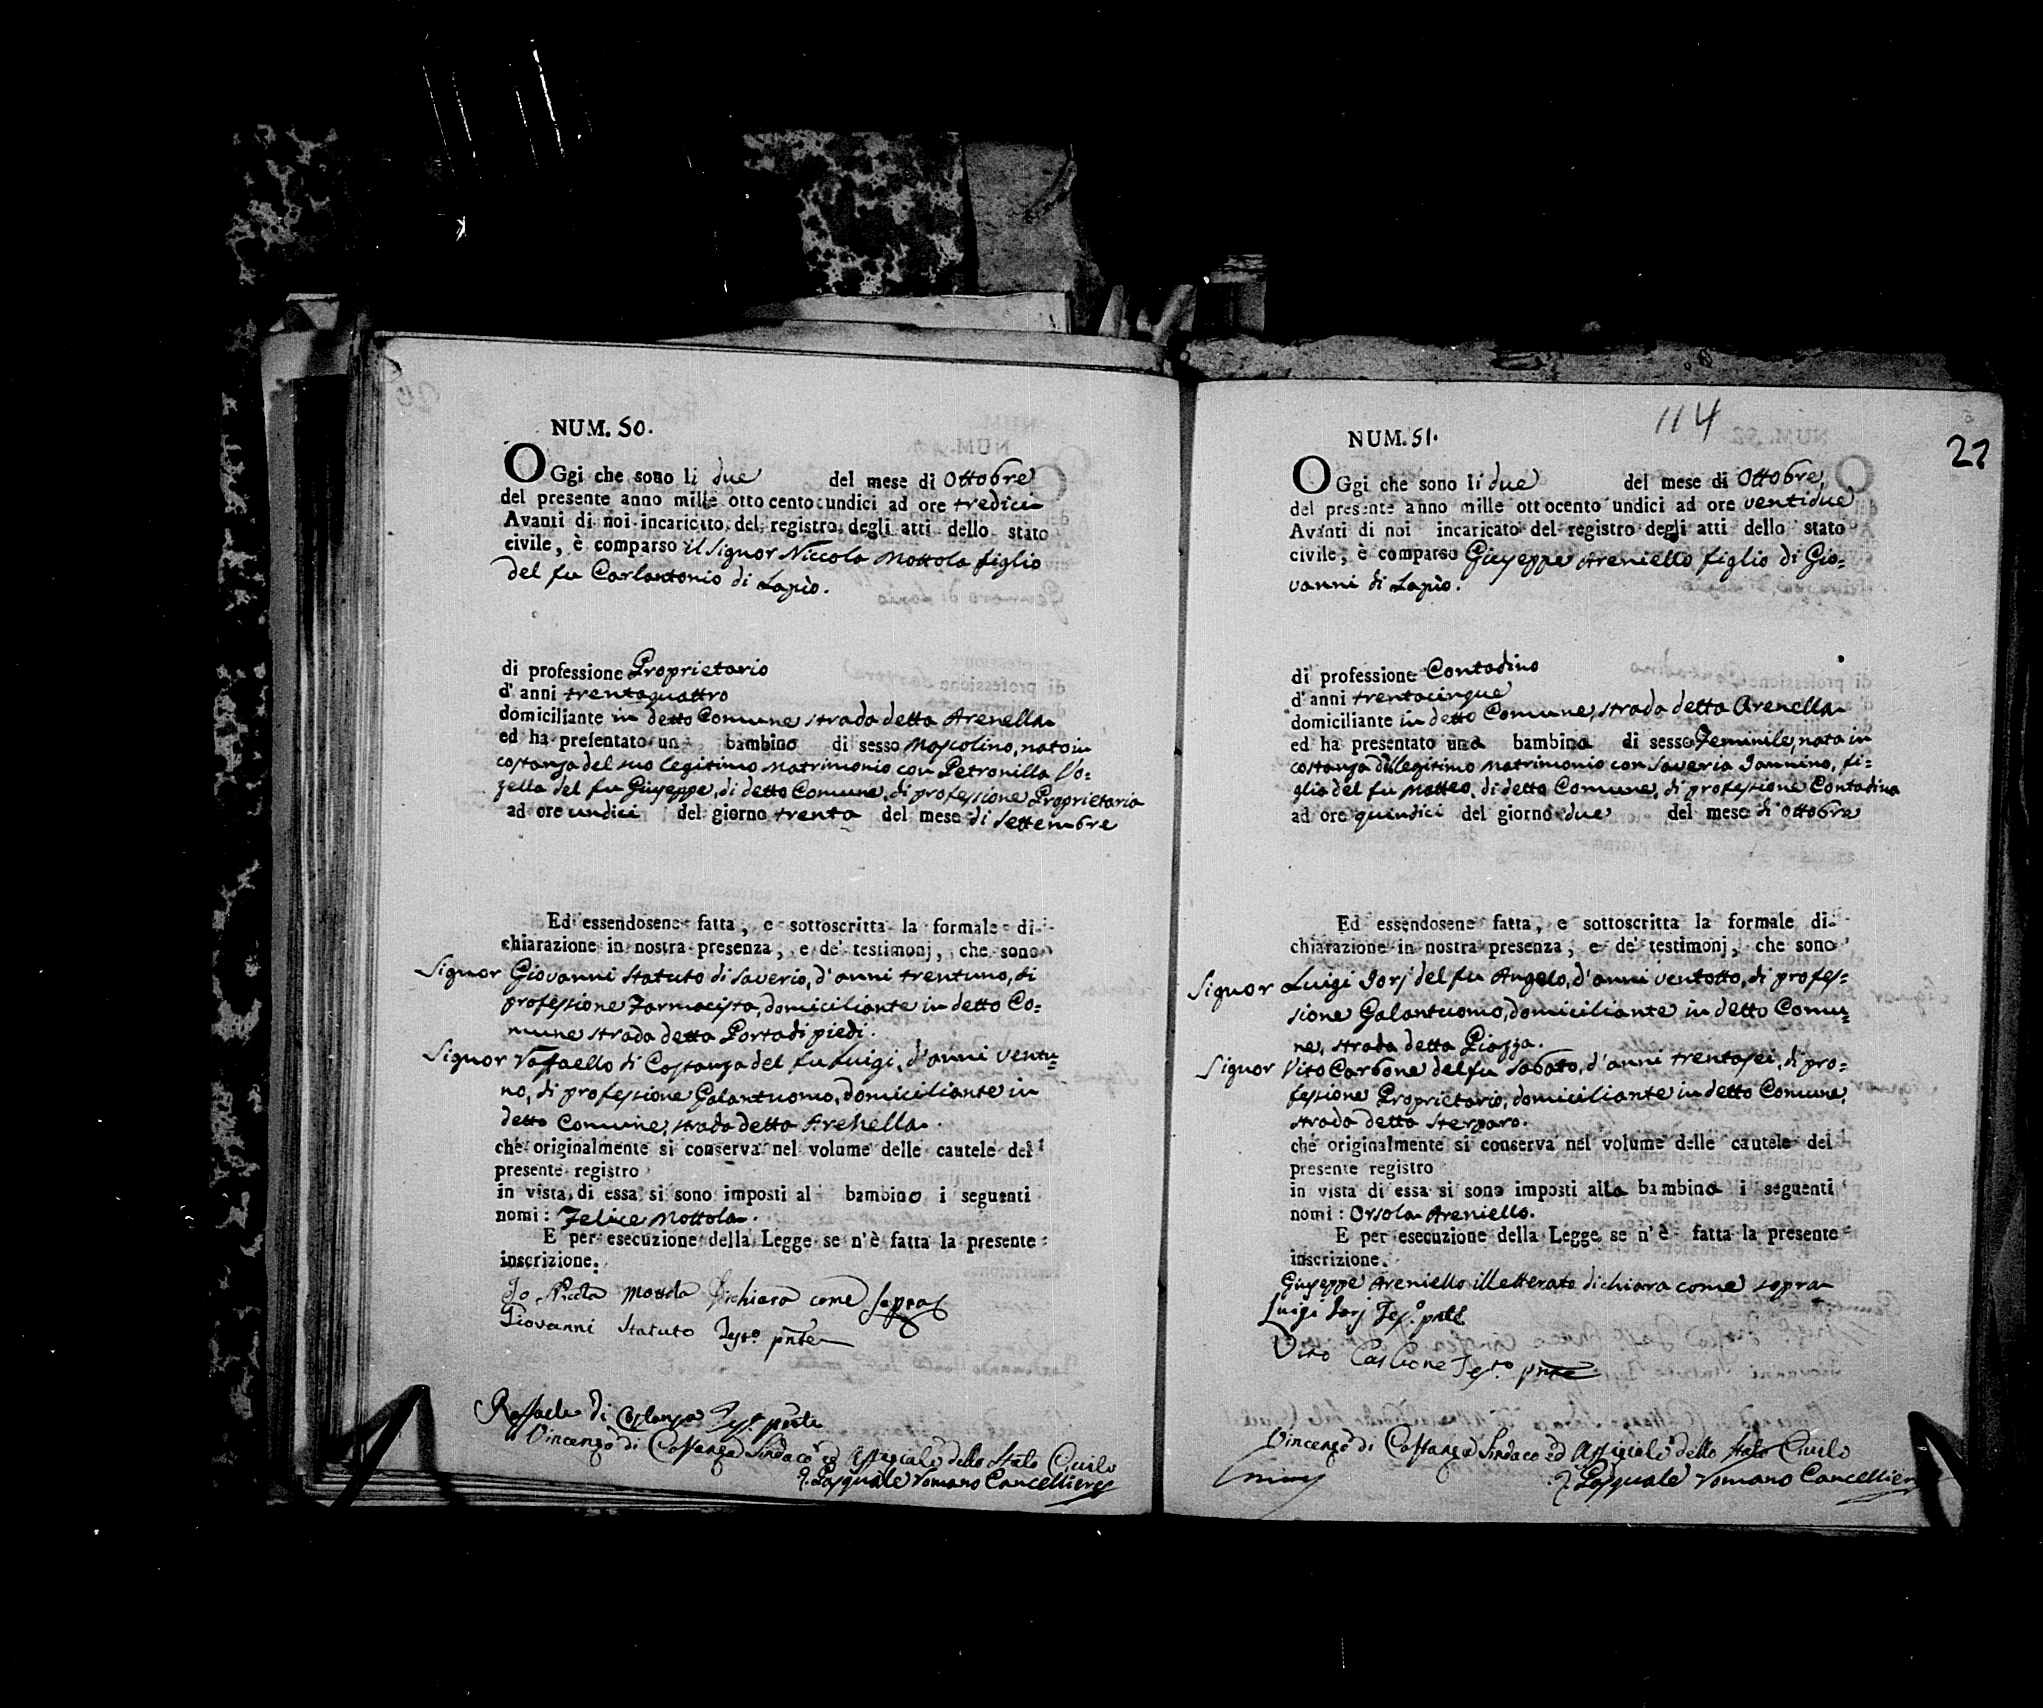 NUM. 50.
OGgi che sono li due del mese di Ottobre
del presente anno mille ottocento undici ad ore tredici
Avanti di noi incaricato del registro degli atti dello stato
civile, è comparso il Signor Niccola Mottola figlio
del fu Carlantonio di Lapio.
di professione Proprietario
d' anni trentaquattro
domiciliante in detto Comune strada detta Arenella
ed ha presentato un bambino di sesso Mascolino, nato in
costanza del suo legitimo Matrimonio con Petronilla Vo=
zella del fu Giuseppe, di detto Comune, di professione Proprietaria
ad ore undici del giorno trenta del mese di Settembre
Ed essendosene fatta, e sottoscritta la formale di-
chiarazione in nostra presenza, e de' testimonj, che sono
Signor Giovanni Statuto di Saverio, d'anni trentuno, di
professione Farmacista, domiciliante in detto Co=
mune strada detta Porta di piedi.
Signor Raffaello di Costanza del fu Luigi, d'anni ventu=
no, di professione Galantuomo, domiciliante in
detto Comune, strada detta Arenella.
che originalmente si conserva nel volume delle cautele del
presente registro
in vista di essa si sono imposti al bambino i seguenti
nomi: Felice Mottola.
E per esecuzione della Legge se n'è fatta la presente
inscrizione.
Io Nicola Mottola Dichiaro come sopra
Giovanni Statuto Testo. pnte
Raffaele di Costanza Testo. pnte
Vincenzo di Costanza Sindaco ed Uffiziale dello Stato Civile
P. Pasquale Romano Cancelliere
114
27
NUM. 51.
OGgi che sono li due del mese di Ottobre,
del presente anno mille ottocento undici ad ore ventidue
Avanti di noi incaricato del registro degli atti dello stato
civile, è comparso Giuseppe Areniello figlio di Gio=
vanni di Lapio.
di professione Contadino
d' anni trentacinque
domiciliante in detto Comune, strada detta Arenella
ed ha presentato una bambina di sesso Feminile, nata in
costanza di legitimo Matrimonio con Saveria Iannino, fi=
glia del fu Matteo, di detto Comune, di professione Contadina
ad ore quindici del giorno due del mese di Ottobre
Ed essendosene fatta, e sottoscritta la formale di-
chiarazione in nostra presenza, e de' testimonj, che sono
Signor Luigi Iorj del fu Angelo, d'anni ventotto, di profes=
sione Galantuomo, domiciliante in detto Comu=
ne, strada detta Piazza.
Signor Vito Carbone del fu Sabato, d'anni trentasei, di pro=
fessione Proprietario, domiciliante in detto Comune,
strada detta Sterparo.
che originalmente si conserva nel volume delle cautele del
presente registro
in vista di essa si sono imposti alla bambina i seguenti
nomi: Orsola Areniello.
E per esecuzione della Legge se n'è fatta la presente
inscrizione.
Giuseppe Areniello illetterato dichiara come sopra
Luigi Iorj Tes.o pnte
Vito Carbone Tes.to pnte
Vincenzo di Costanza Sindaco ed Uffiziale dello Stato Civile
P. Pasquale Romano Cancelliere